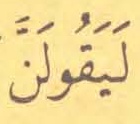 لَيَقُولَنَّ